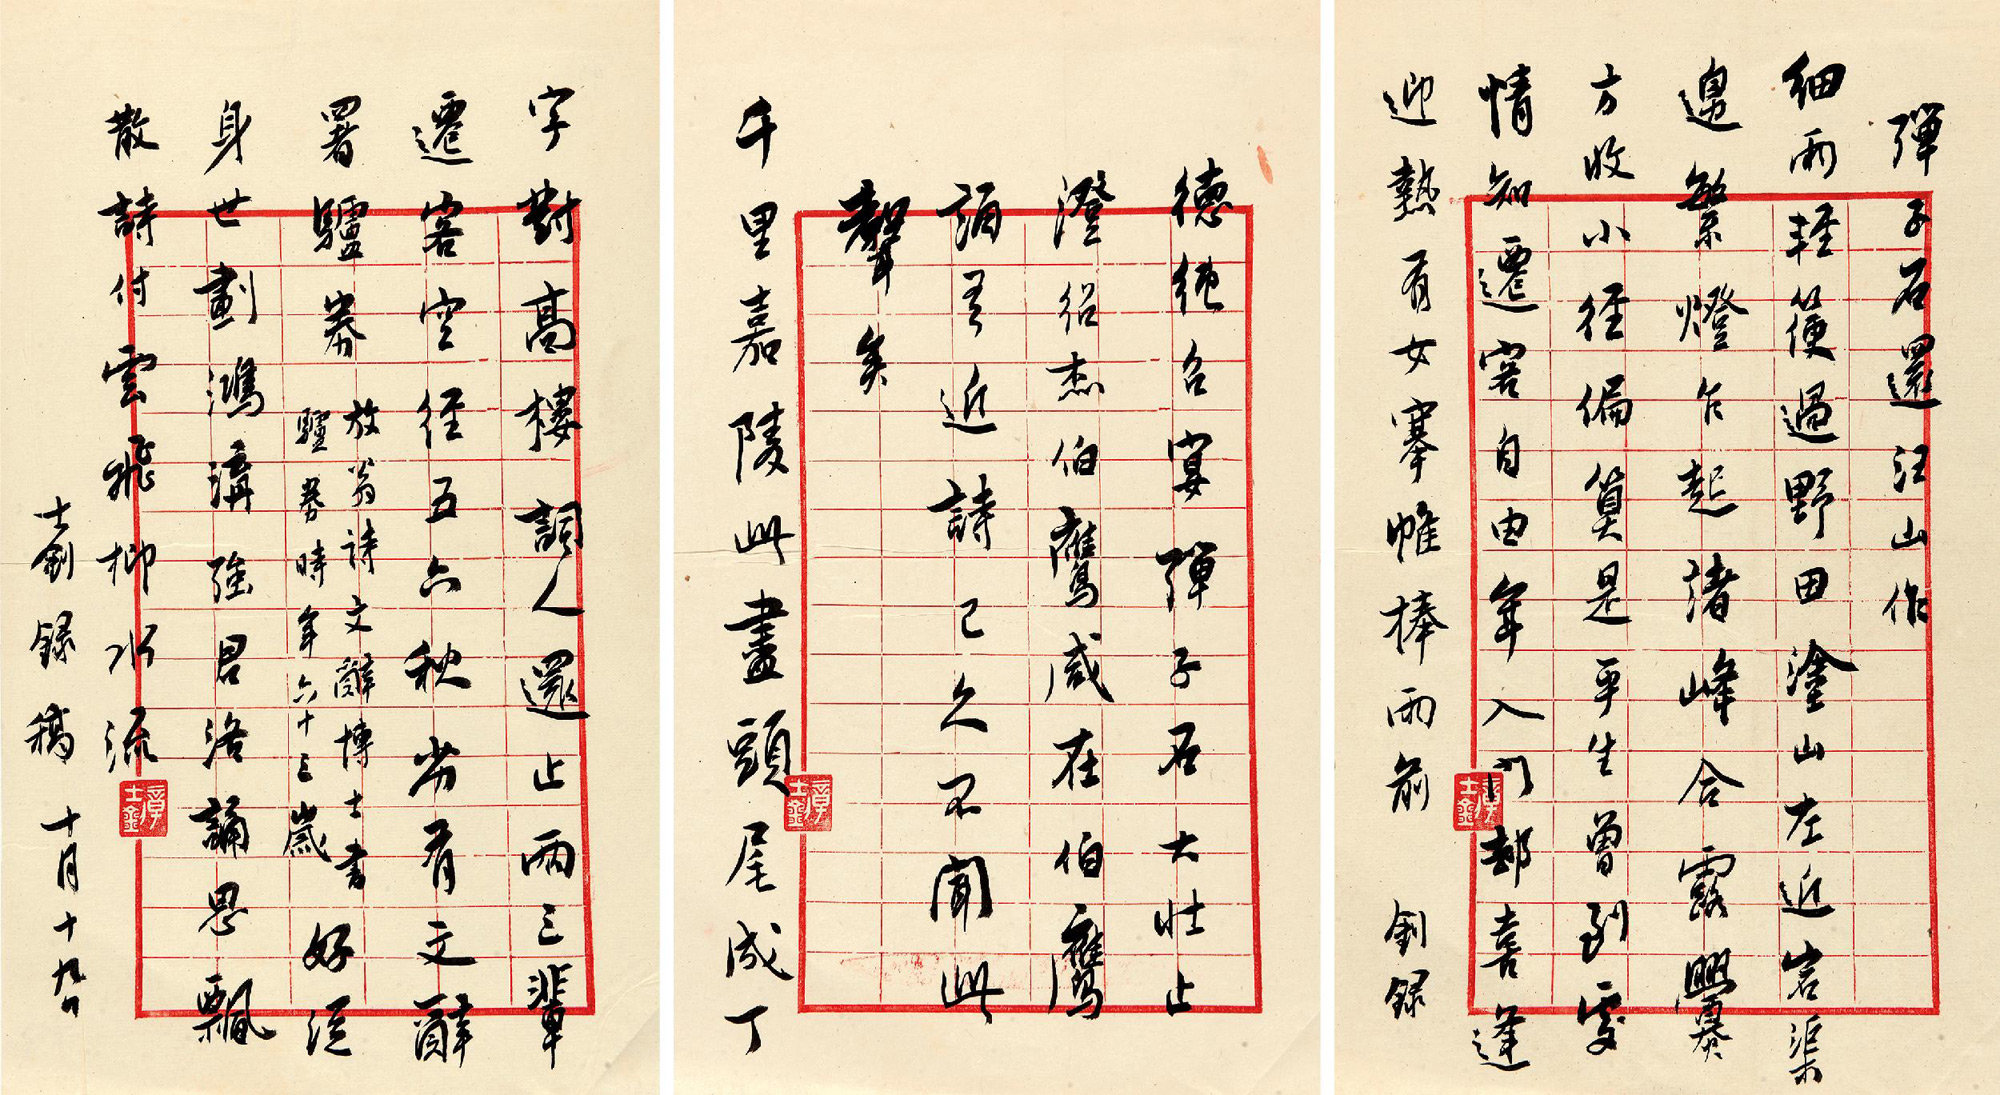 彈子石還汪山作
細雨輕箯過野田塗山左近宕渠
邊繁燈乍起諸峰合露爨
方收小徑偏算是平生曾到處
情知遷客自由年入門都喜逢
迎熱有女搴帷捧雨前 釗錄
章士釗
德純召宴彈子石大壯止
澄紹杰伯鷹咸在伯鷹
誦吾近詩已久不聞此
聲矣
千里嘉陵此盡頭尾成丁
章士釗
字對高樓詞人還止兩三輩
遷客空經五六秋劣有文辭
署驢券 放翁詩文辭博士書
驢券時年六十三歲 好從
身世劃鴻溝強君洛誦思飄
散詩付雲飛抑水流
士釗錄稿 十月十九日
章士釗